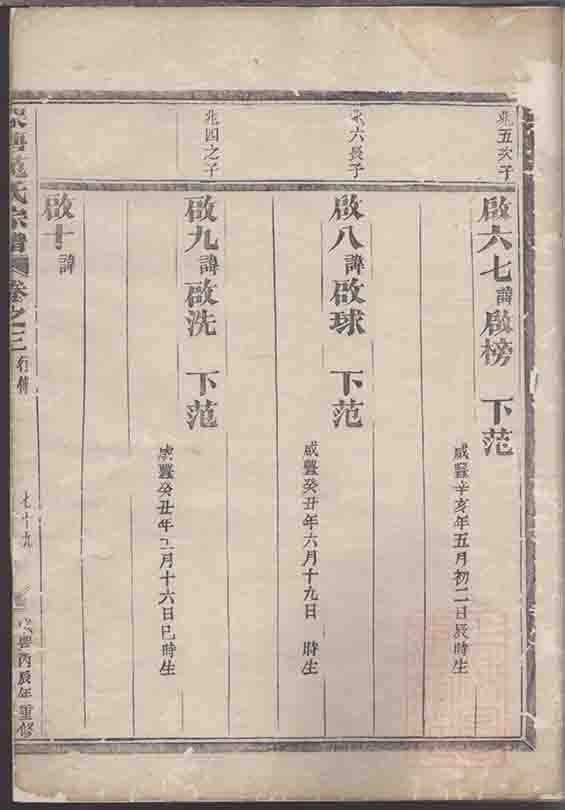 兆五次子
啟六七諱啟榜 下范
咸豐辛亥年五月初二日辰時生
兆六長子
啟八諱啟球 下范
咸豐癸丑年六月十九日 時生
兆四之子
啟九諱啟洗 下范
咸豐癸丑年二月十六日巳時生
啟十諱
范氏宗譜 卷之三 行傳 七十九 咸豐丙辰年重修